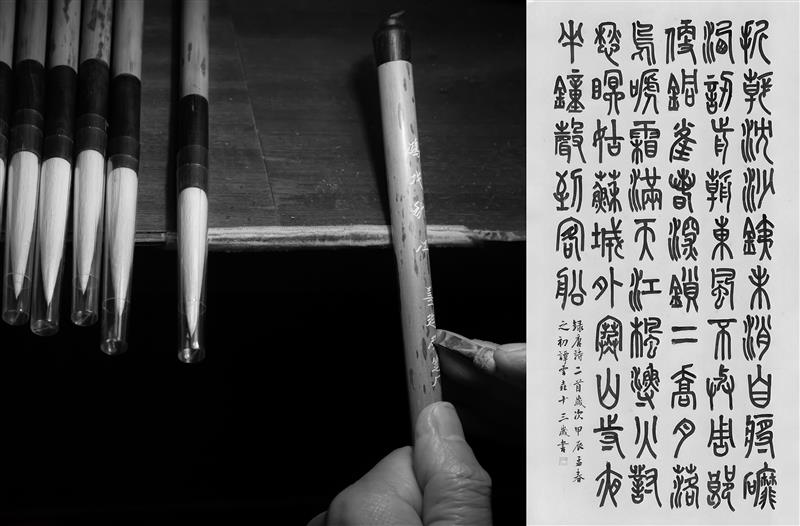 折戟沈沙鐵未消自將磨
洗認前朝東風不與周郎
便銅雀春深鎖二喬月落
烏啼霜滿天江楓漁火對
愁眠姑蘇城外寒山寺夜
半鐘聲到客船
錄唐詩二首歲次甲辰孟春
之初譚十三歲書